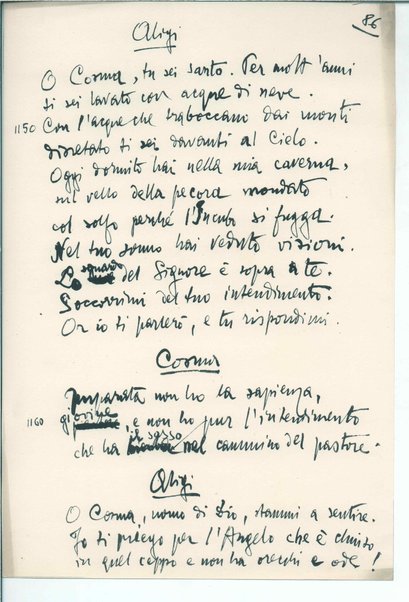 86
Aligi
O Cosma, tu sei santo. Per molt'anni
ti sei lavato con acque di neve.
1150 Con l'acque che traboccano dai monti
disetato ti sei davanti al Cielo.
Oggi dormito hai nella mia caverna,
sul vello della pecora mondato
col solfo perché l'Incubo si fugga.
Nel tuo sonno hai veduto visioni.
Lo sguardo del Signore è sopra a te.
Soccorrimi del tuo intendimento.
Or io ti parlerò, e tu rispondimi.
Cosma
Imparata non ho la sapienza,
1160 giovine, e non ho pur l'intendimento
che ha il sasso nel cammino del pastore.
Aligi
O Cosma, uomo di Dio, stammi a sentire.
Io ti priego per l'Angelo che è chiuso
in quel ceppo e non ha orecchi e ode!